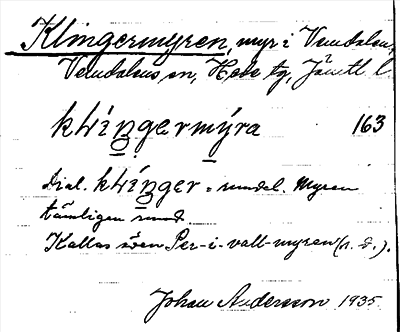 Klingermyren, myr i Vemdalen,
Vemdalens sn, Hede tg, Jämtl. l.
kɫiŋgermýra 163
Dial. kɫiŋger = rundel. Myren
tämligen rund.
Kallas även Per-i-vall-myren (s. d.).
Johan Andersson 1935